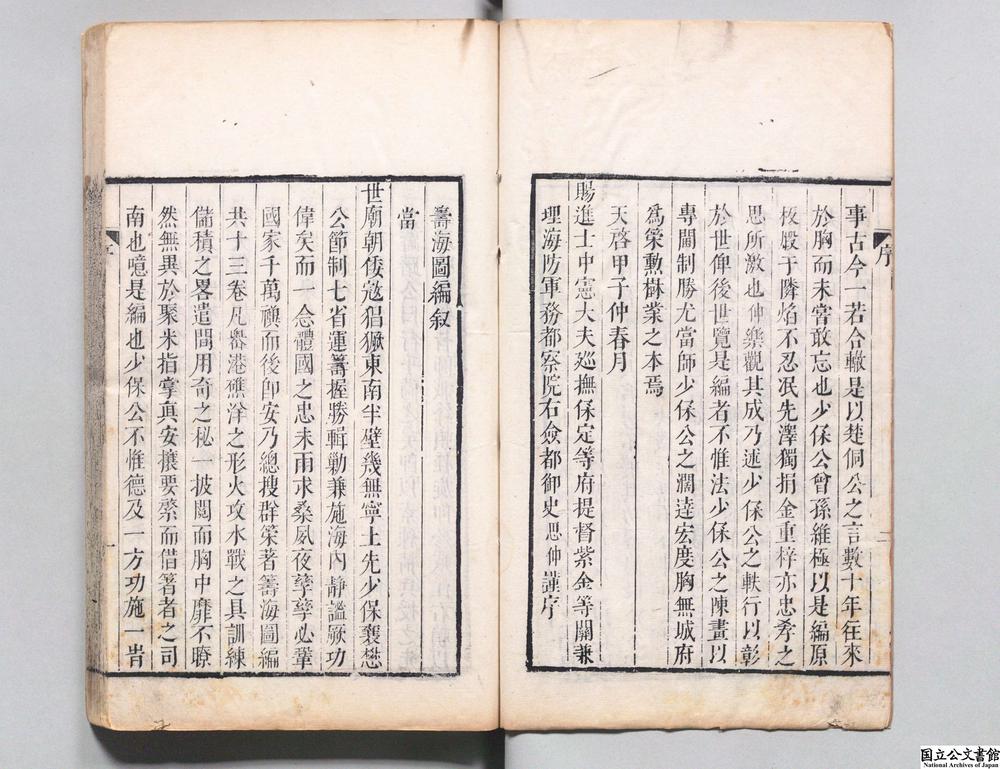 序
事古今一若合轍是以楚侗公之言數十年徃來
於胸而未甞敢忘也少保公曾孫維極以是編原
板燬于隣焰不忍泯先澤獨捐金重梓亦忠孝之
思所激也仲樂觀其成乃述少保公之軼行以彰
於世俾後世覽是編者不惟法少保公之陳畫以
專閫制勝尤當師少保公之濶逹宏度胸無城府
爲策勲樹業之本焉
天啓甲子仲春月
賜進士中憲大夫廵撫保定等府提督紫金等關兼
理海防軍務都察院右僉都御史思仲謹序
籌海圖編叙
當
世廟朝倭寇猖獗東南半壁幾無寧土先少保襄懋
公節制七省運籌握勝輯勦兼施海內靜謐厥功
偉矣而一念體國之忠未雨求桑夙夜孳孳必鞏
國家千萬禩而後卽安乃總搜群策著籌海圖編
共十三卷凡嶴港礁洋之形火攻水戰之具訓練
儲積之畧遣間用奇之秘一披閱而胸中靡不暸
然無異於聚米指掌眞安攘要綮而借箸者之司
南也噫是編也少保公不惟德及一方功施一旹
序
一
国立公文書館
National Archives of Japan